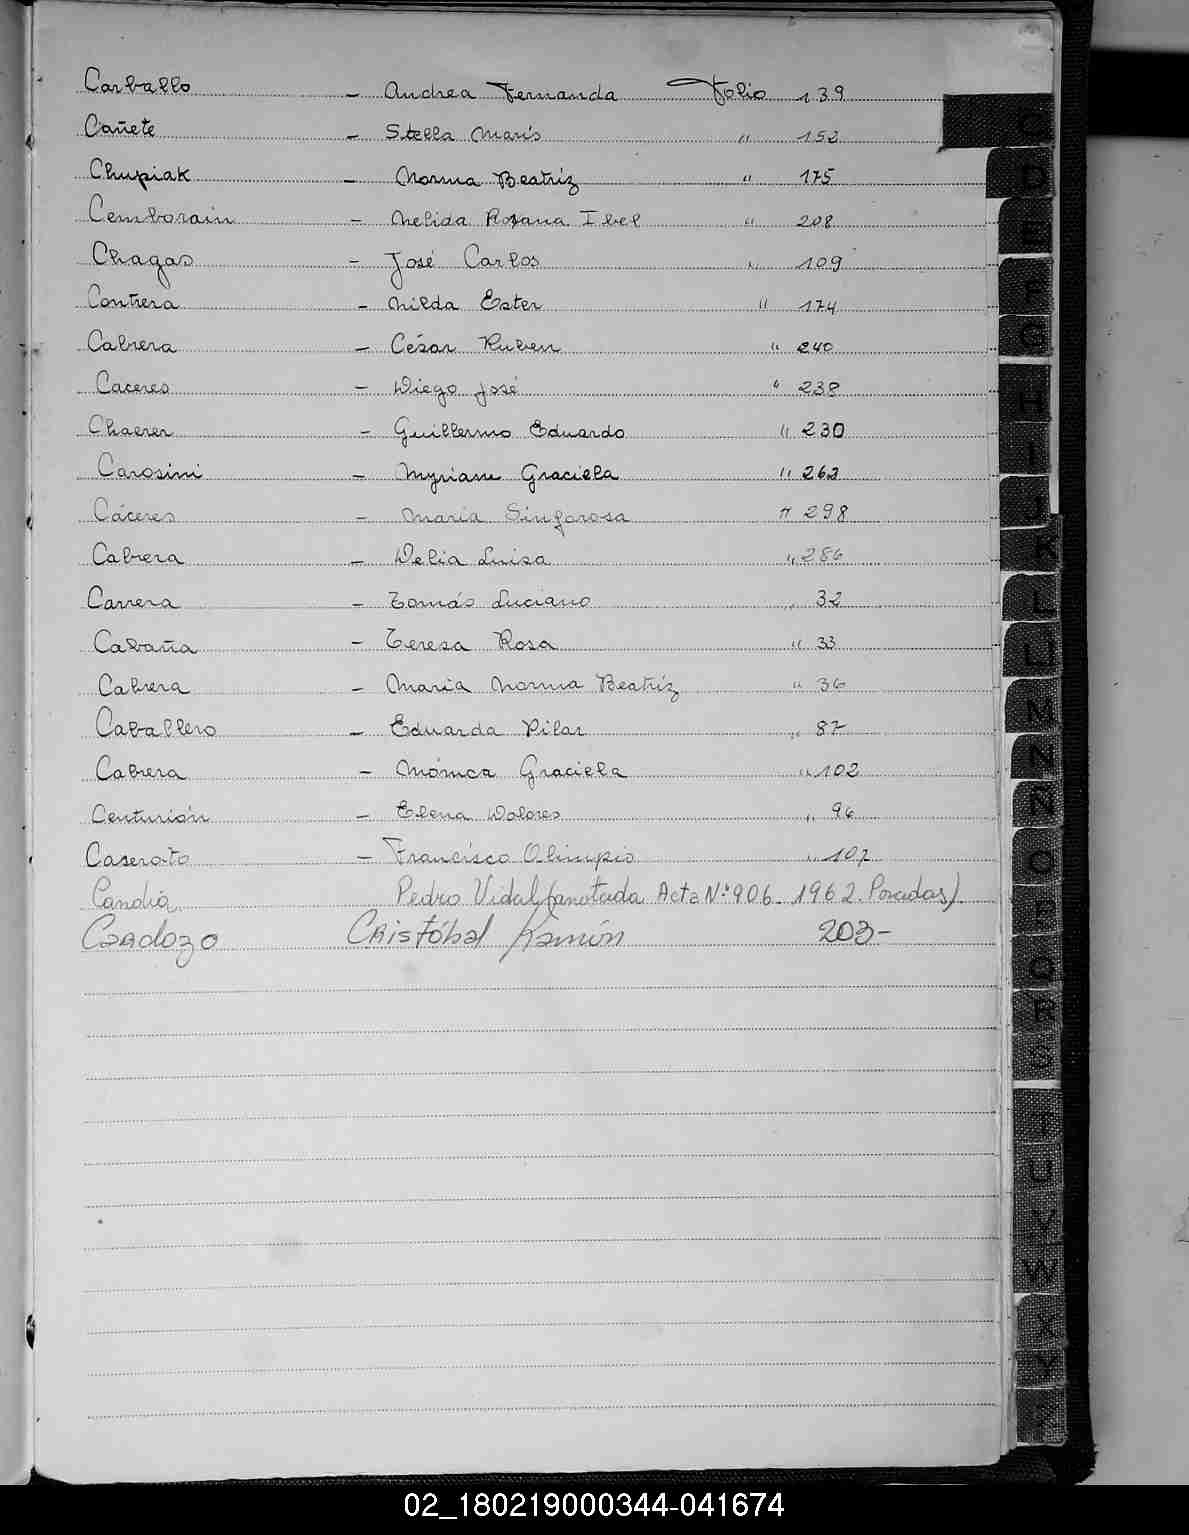 Carballo - Andrea Fernanda Folio 139
Cañete - Stella Maris " 152
Chupiak - Norma Beatriz " 175
Cemborain - Nelida Rosana Ibel " 208
Chagas - José Carlos " 109
Contrera - Nilda Ester " 174
Cabrera - César Ruben " 240
Caceres - Diego José " 238
Chaerer - Guillermo Eduardo " 230
Carosini - Myriam Graciela " 263
Cáceres - Maria Sinforosa " 298
Cabrera - Delia Luisa " 286
Carrera - Tomás Luciano " 32
Cabaña - Teresa Rosa " 33
Cabrera - Maria Norma Beatríz " 36
Caballero - Eduarda Pilar " 87
Cabrera - Mónica Graciela " 102
Centurión - Elena Dolores " 96
Caserato - Francisco Olimpio " 107
Candia Pedro Vidal (anotada Acta Nº 906. 1962. Posadas).
Cardozo Cristóbal Ramón 203-
C
D
E
F
G
H
I
J
K
L
LL
M
N
Ñ
O
P
Q
R
S
T
U
V
W
X
Y
Z
02_180219000344-041674